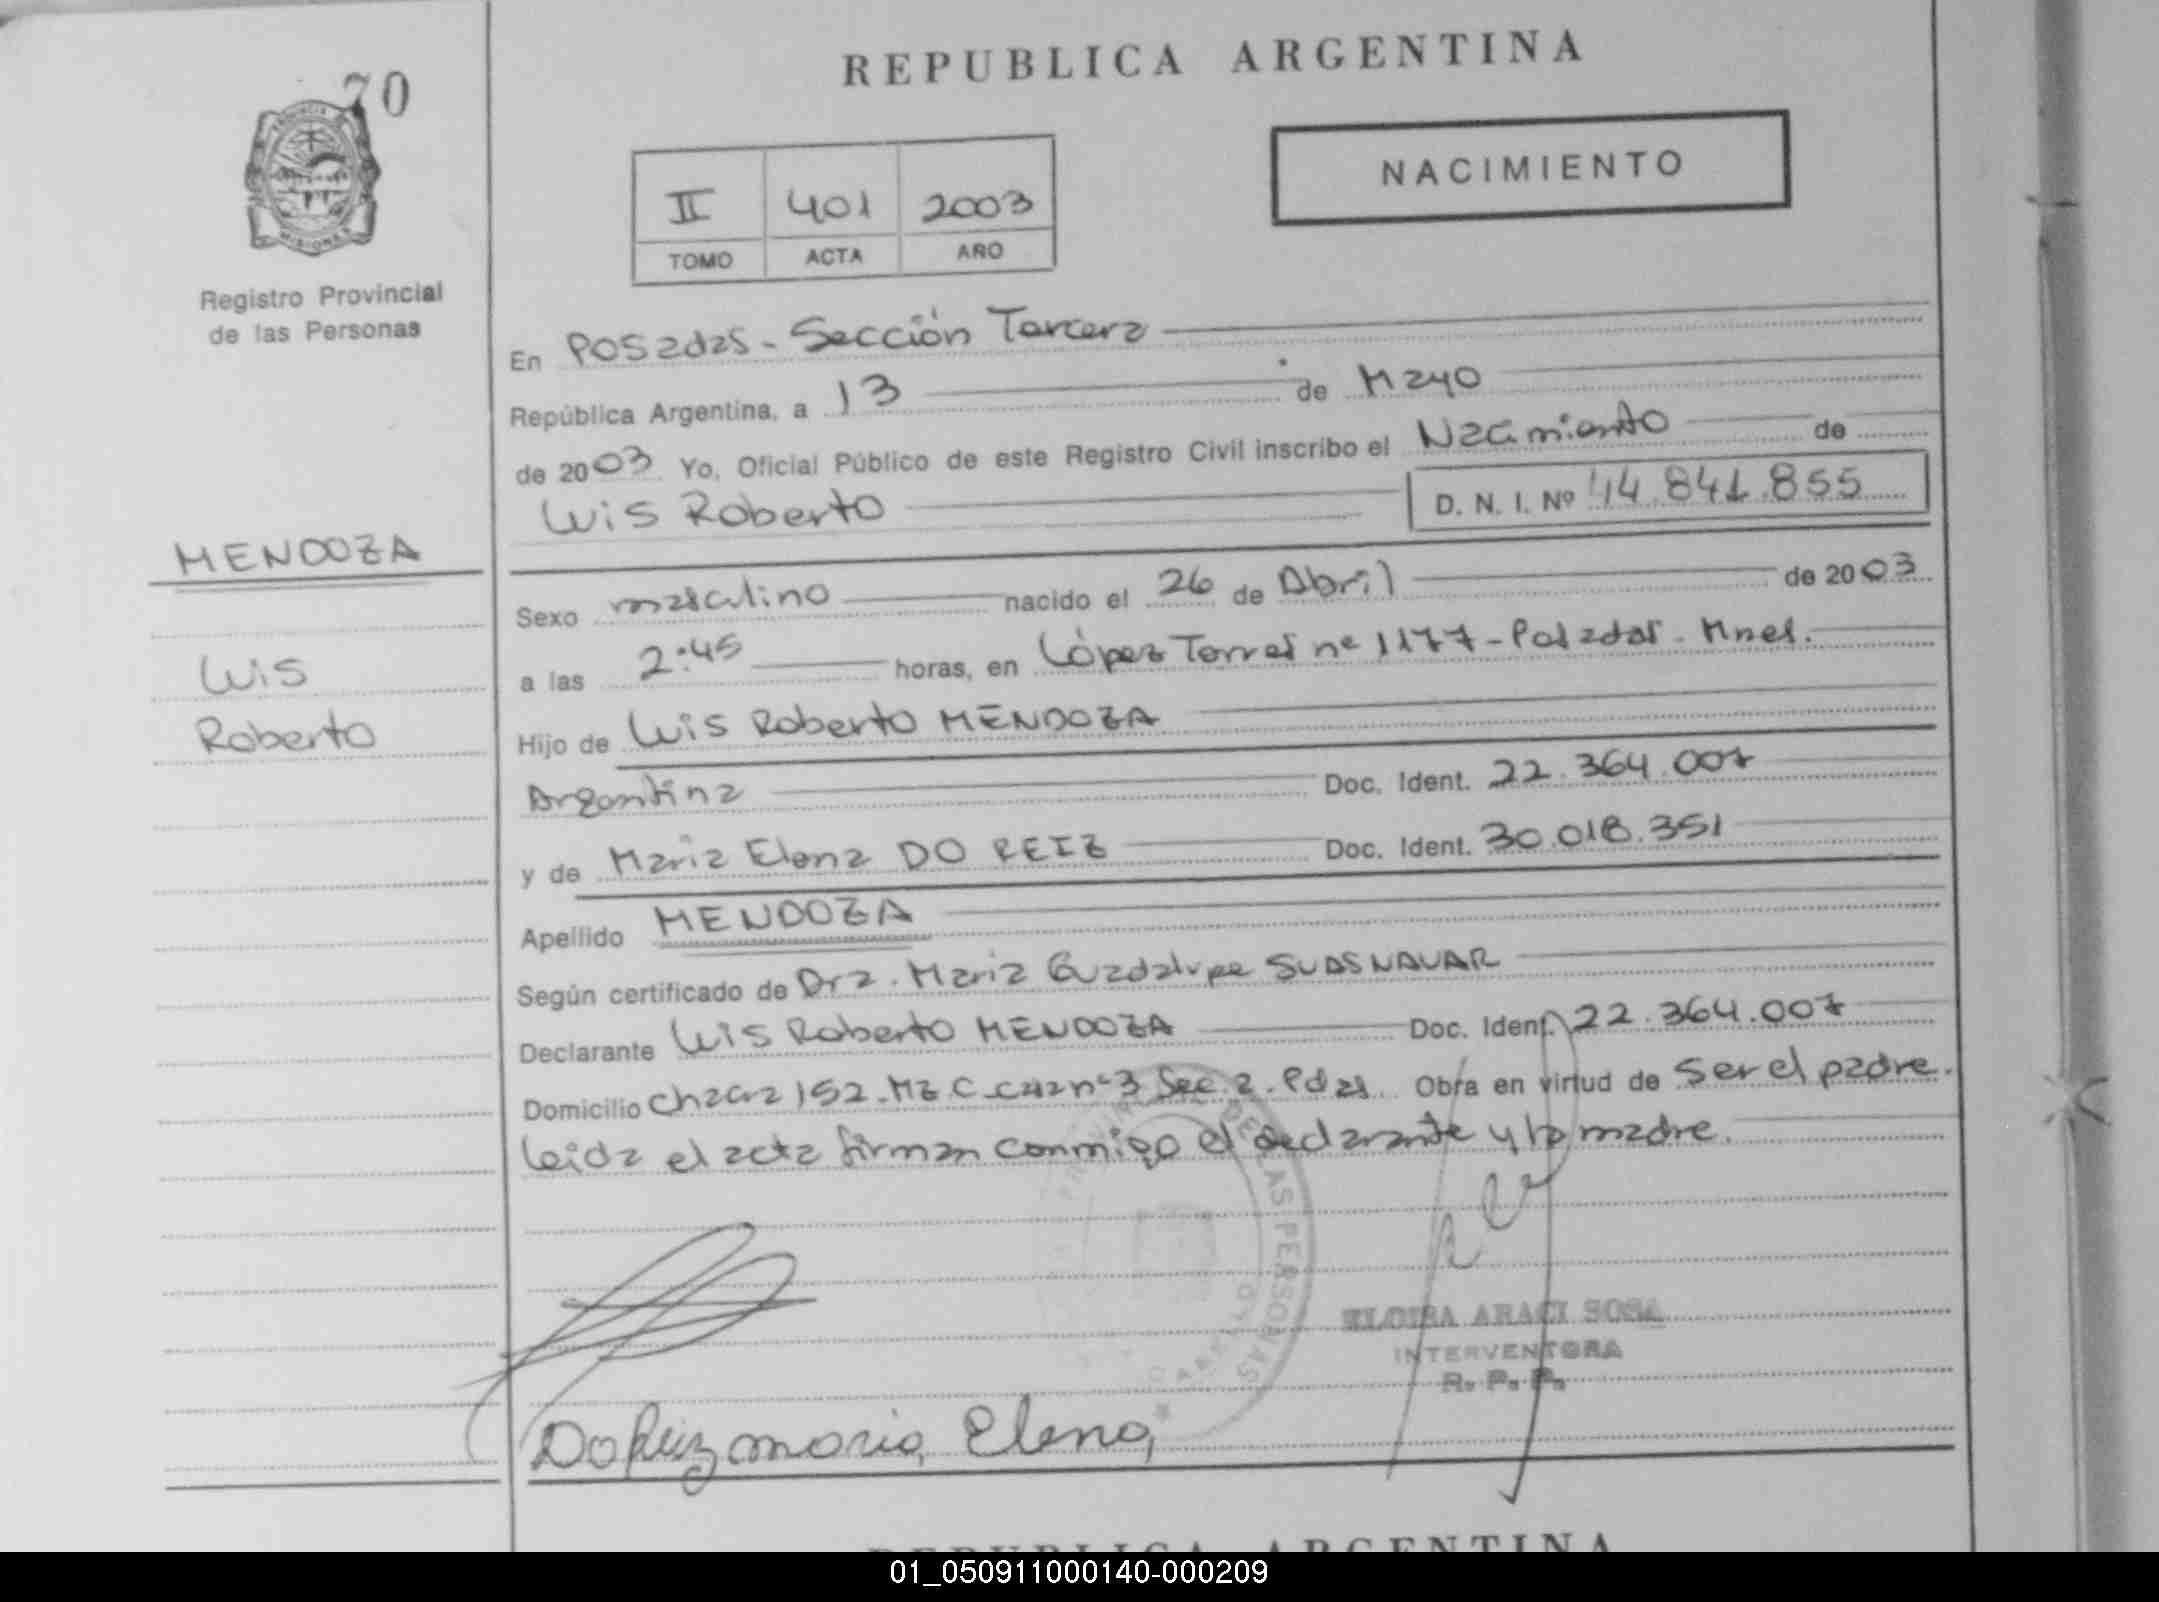 70
PROVINCIA
MISIONES
Registro Provincial
de las Personas
MENDOZA
Luis
Roberto
REPUBLICA ARGENTINA
II 401 2003
TOMO ACTA AÑO
NACIMIENTO
En Posadas - Sección Tercera
República Argentina, a 13 de Mayo
de 2003 Yo, Oficial Público de este Registro Civil inscribo el Nacimiento de
Luis Roberto D. N. I. Nº 44.841.855
Sexo masculino nacido el 26 de Abril de 2003
a las 2:45 horas, en López Torres nº 1177 - Posadas. Mnes.
Hijo de Luis Roberto MENDOZA
Argentina Doc. Ident. 22.364.007
y de Maria Elena DO REIZ Doc. Ident. 30.018.351
Apellido MENDOZA
Según certificado de Dra. Maria Guadalupe SUASNAVAR
Declarante Luis Roberto MENDOZA Doc. Ident. 22.364.007
Domicilio Chacra 152. Mz C casa nº 3 Sec. 2. Pdas. Obra en virtud de ser el padre.
Leida el acta firman conmigo el declarante y la madre.
DE LAS PERSONAS
ELOISA ARACI SOSA
INTERVENTORA
R. P. P.
Do Reiz maria Elena
REPUBLICA ARGENTINA
01_050911000140-000209